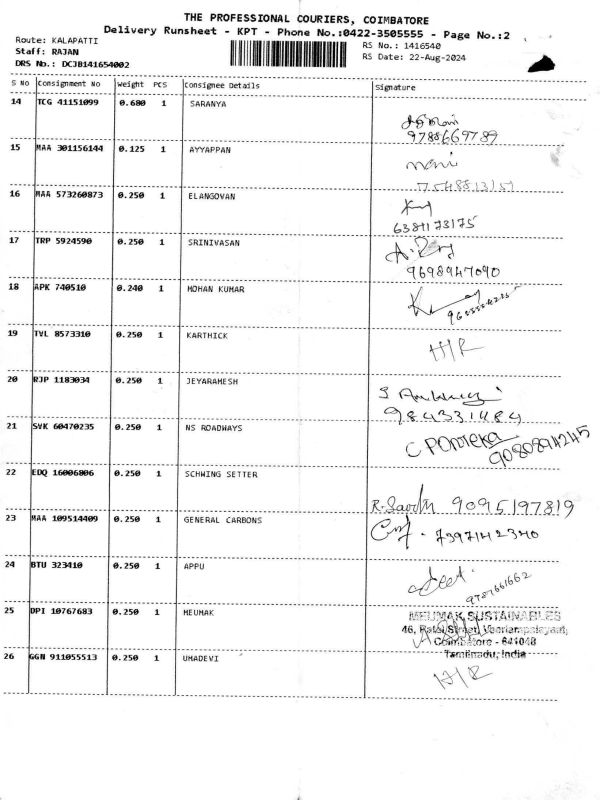 THE PROFESSIONAL COURIERS, COIMBATORE
Delivery Runsheet - KPT - Phone No.:0422-3505555 - Page No.:2
Route: KALAPATTI RS No.: 1416540
Staff: RAJAN RS Date: 22-Aug-2024
DRS No.: DCJB141654002
S No Consignment No Weight PCS Consignee Details Signature
14 TCG 41151099 0.680 1 SARANYA
9788669789
15 MAA 301156144 0.125 1 AYYAPPAN
mani
16 MAA 573260873 0.250 1 ELANGOVAN
6381173175
17 TRP 5924590 0.250 1 SRINIVASAN
9698947090
18 APK 740510 0.240 1 MOHAN KUMAR
19 TVL 8573310 0.250 1 KARTHICK
H/R
20 RJP 1183034 0.250 1 JEYARAMESH
21 SVK 60470235 0.250 1 NS ROADWAYS
9080894245
22 EDQ 16006806 0.250 1 SCHWING SETTER
9095197819
23 MAA 109514409 0.250 1 GENERAL CARBONS
7397142340
24 BTU 323410 0.250 1 APPU
9787661662
25 DPI 10767683 0.250 1 MEUMAK
MEUMAK SUSTAINABLES
46, Street, Veeriampalayam,
Coimbatore - 641048
Tamilnadu, India
26 GGN 911055513 0.250 1 UMADEVI
H/R